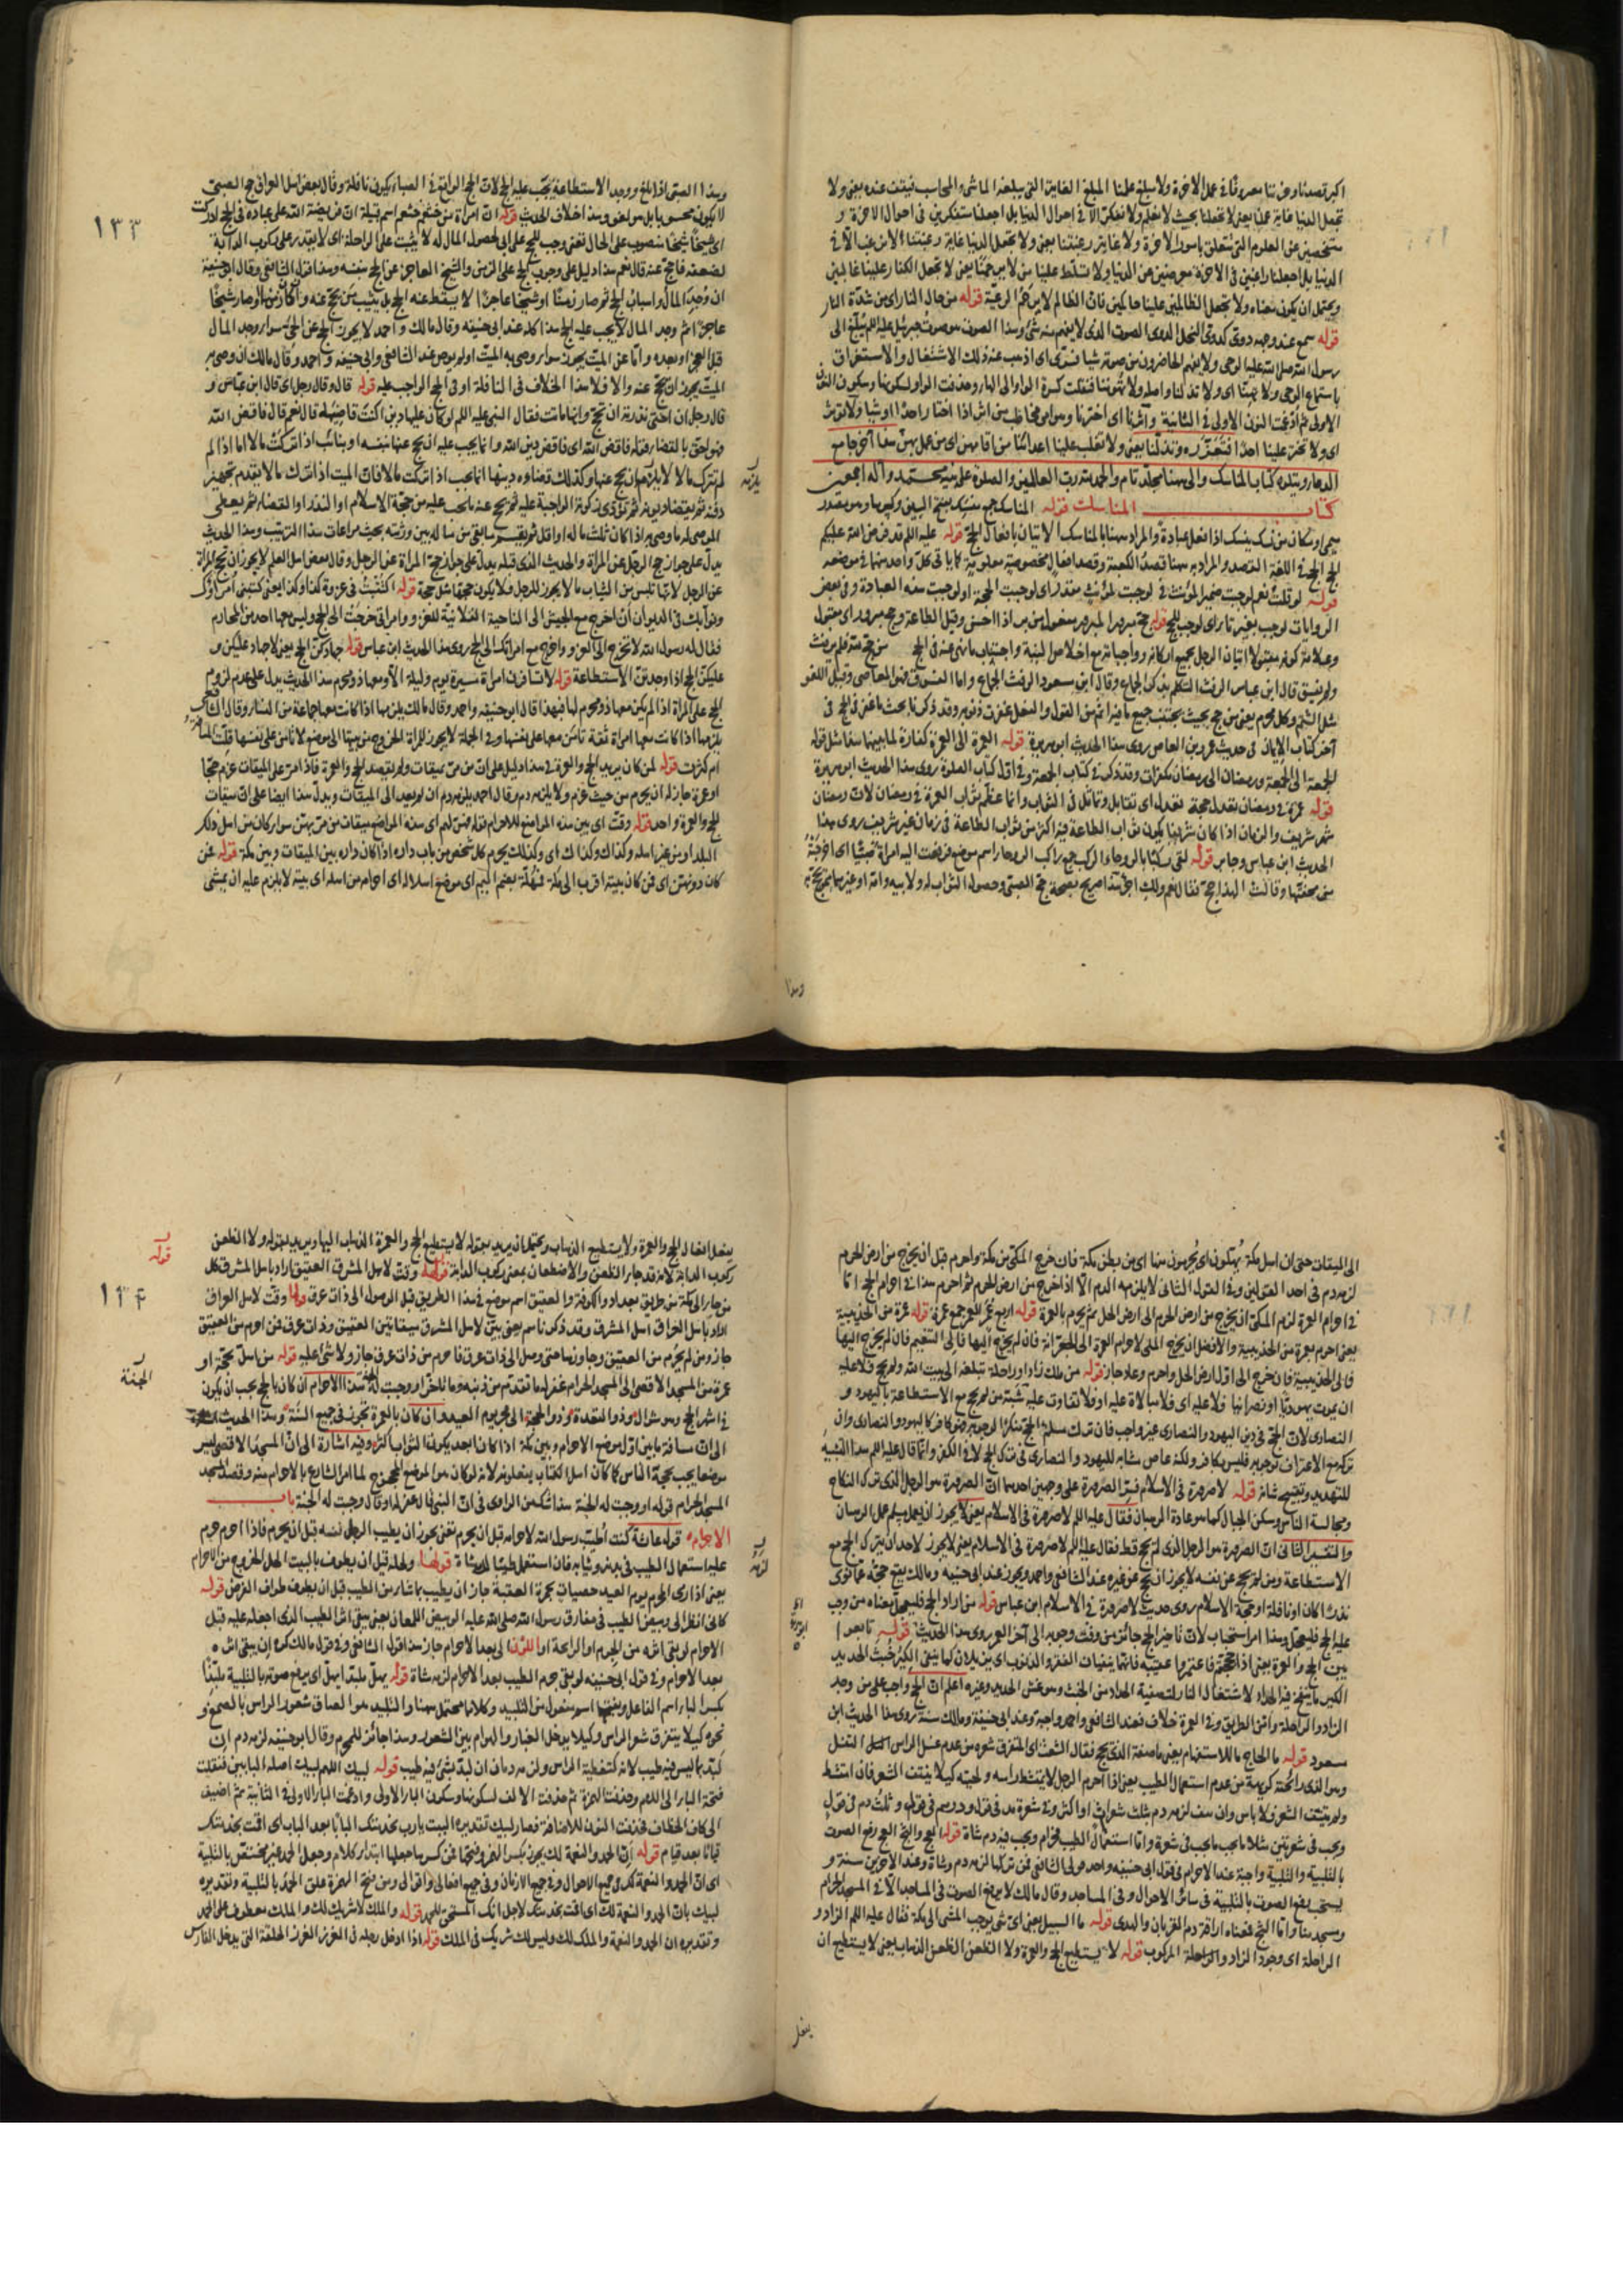 اكبر قصدنا وحزننا مصروفا في عمل الآخرة ولا مبلغ علمنا المبلغ الغاية التي يبلغه الماشي والمحاسب فيقف عنده يعني ولا
تجعل الدنيا غاية علمنا يعني لا تجعلنا بحيث لا نعلم ولا نتفكر الا في احوال الدنيا بل اجعلنا متفكرين في احوال الآخرة و
متفحصين عن العلوم التي تتعلق بامور الآخرة ولا غاية رغبتنا يعني ولا تجعل الدنيا غاية رغبتنا لان نرغب الا في
الدنيا بل اجعلنا راغبين في الآخرة معرضين عن الدنيا ولا تسلط علينا من لا يرحمنا يعني لا تجعل الكفار علينا غالبين
ويحتمل ان يكون معناه ولا تجعل الظالمين علينا حاكمين فان الظالم لا يرحم الرعية قوله من حال النار اي من شدة النار
قوله سمع عند وجهه دوي كدوي النحل الدوي الصوت الذي لا يفهم منه شيء وهذا الصوت هو صوت جبرئيل عليه السلم يبلغ الى
رسول الله صلى الله عليه الوحي ولا يفهم الحاضرون من صوته شيا فسري اي اذهب عنه ذلك الاشتغال والاستغراق
باستماع الوحي ولا تهنا اي ولا تذلنا واصله ولا تهوننا فنقلت كسرة الواو الى الهاء وحذفت الواو لسكونها وسكون النون
الاولى ثم ادغمت النون الاولى في الثانية وآثرنا اي اخترنا
اي ولا تختر علينا احدا فتعززه وتذللنا يعني ولا تغلب علينا اعدائنا هذا آخر جامع
الدعاء ويتلوه كتاب المناسك والى ههنا مجلد تام والحمد لله رب العالمين والصلوة على نبيه محمد وآله اجمعين
كتاب المناسك قوله المناسك جمع منسك بفتح السين وكسرها وهو مصدر
ميمي او مكان من نسك ينسك اذا فعل عبادة والمراد ههنا بالمناسك الاتيان بافعال الحج قوله عليه السلم قد فرض الله عليكم
الحج الحج في اللغة القصد والمراد به ههنا قصد الكعبة وقصد افعال مخصوصة معلومة كما ياتي كل واحد منها في موضعه
قوله لو قلت نعم لوجبت ضمير المؤنث في لوجبت مقدر اي لوجبت الحجة او لوجبت هذه العبادة وفي بعض
الروايات لوجب بغير تاء اي لوجب الحج قوله حج مبرور المبرور مفعول من بر اذا احسن وقيل الطاعة وحج مبرور اي مقبول
وعلامة كونه مقبولا اتيان الرجل بجميع اركانه وواجباته مع اخلاص النية واجتناب ما نهي عنه في الحج من حج لله فلم يرفث
ولم يفسق قال ابن عباس الرفث التكلم بذكر الجماع وقال ابن مسعود الرفث الجماع واما الفسوق فهو المعاصي وقيل اللغو
آخر كتاب الايمان في حديث عمرو بن العاص روى هذا الحديث ابو هريرة قوله العمرة الى العمرة كفارة لما بينهما هذا مثل قوله
الجمعة الى الجمعة ورمضان الى رمضان مكفرات وقد ذكر في كتاب الجمعة وفي اول كتاب الصلوة روى هذا الحديث ابو هريرة
قوله عمرة في رمضان تعدل حجة تعدل اي تقابل وتماثل في الثواب وانما عظم ثواب العمرة في رمضان لان رمضان
شهر شريف والزمان اذا كان شريفا يكون ثواب الطاعة فيه اكثر من ثواب الطاعة في زمان غير شريف روى هذا
الحديث ابن عباس وجابر قوله لقي ركبا بالروحاء الركب جمع راكب الروحاء اسم موضع فرفعت اليه امراة صبيا اي اخرجته
من محفتها وقالت الهذا حج فقال نعم ولك اجر هذا صريح بصحة حج الصبي وحصول الثواب له ولابيه
وهذا
١٣٣
وهذا الصبي اذا بلغ ووجد الاستطاعة يجب عليه الحج لان الحج الواقع في الصبا يكون نافلة وقال بعض اهل العراق حج الصبي
لا يكون محسوبا بل هو لغو وهذا خلاف الحديث قوله ان امراة من خثعم خثعم اسم قبيلة ان فريضة الله على عباده في الحج ادركت
ابي شيخا شيخا منصوب على الحال تعني وجب الحج على ابي لحصول المال له لا يثبت على الراحلة اي لا يقدر على ركوب الدابة
لضعفه فاحج عنه قال نعم هذا دليل على وجوب الحج على الزمن والشيخ العاجز عن الحج بنفسه وهذا قول الشافعي وقال ابو حنيفة
ان وجد المال واسباب الحج ثم صار زمنا او شيخا عاجزا لا يسقط عنه الحج بل ينيب من يحج عنه
عاجزا ثم وجد المال لا يجب عليه الحج هذا كله عند ابي حنيفة وقال مالك واحمد لا يجوز الحج عن الحي سواء وجد المال
قبل العجز او بعده واما عن الميت يجوز سواء وصى به الميت او لم يوص عند الشافعي وابي حنيفة واحمد وقال مالك ان وصى به
الميت يجوز ان يحج عنه والا فلا هذا الخلاف في النافلة او في الحج الواجب عليه قوله قال وقال رجل اي قال ابن عباس و
قال رجل ان اختي نذرت ان تحج وانها ماتت فقال النبي عليه السلم لو كان عليها دين اكنت قاضيه قال نعم قال فاقض الله
فهو احق بالقضاء قوله فاقض الله اي فاقض دين الله وانما يجب عليه ان يحج عنها بنفسه او بنائب اذا تركت مالا اما اذا لم
تترك مالا لا يلزمه ان يحج عنها وكذلك قضاء دينها انما يجب اذا تركت مالا فان الميت اذا ترك مالا يقدم تجهيز
يلزمه
دفنه ثم يقضى ديونه ثم تؤدى زكوته الواجبة عليه ثم يحج عنه ما يجب عليه من حجة الاسلام او النذر او القضاء ثم يعطى
الموصى له ما وصي به اذا كان ثلث ماله او اقل ثم يقسم ما بقي من ماله بين ورثته بحيث مراعات هذا الترتيب وهذا الحديث
يدل على جواز حج الرجل عن المراة والحديث الذي قبله يدل على جواز حج المراة عن الرجل وقال بعض اهل العلم لا يجوز ان تحج المراة
عن الرجل لانها تلبس من الثياب ما لا يجوز للرجل فلا يكون حجها مثل حجه قوله اكتتبت في غزوة كذا وكذا يعني كتبني امراؤك
ونوابك في الديوان ان اخرج مع الجيش الى الناحية الفلانية للغزو وامراتي خرجت الى الحج وليس معها احد من المحارم
فقال له رسول الله لا تخرج الى الغزو واخرج مع امراتك الى الحج روى هذا الحديث ابن عباس قوله جهادكن الحج يعني لا جهاد عليكن و
عليكن الحج اذا وجدتن الاستطاعة قوله لا تسافرن امراة مسيرة يوم وليلة الا ومعها ذو محرم هذا الحديث يدل على عدم لزوم
الحج على المراة اذا لم يكن معها ذو محرم لها وبهذا قال ابو حنيفة واحمد وقال مالك يلزمها اذا كانت معها جماعة من النساء وقال الشافعي
يلزمها اذا كانت معها امراة ثقة تامن معها على نفسها وفي الجملة لا يجوز للمراة الخروج من بيتها الى موضع لا تامن على نفسها قلت المسافة
ام كثرت قوله لمن كان يريد الحج والعمرة في هذا دليل على ان من مر بميقات ولم يقصد الحج والعمرة فاذا مر على الميقات عزم حجا
او عمرة جاز له ان يحرم من حيث عزم ولا يلزمه دم وقال احمد يلزمه دم ان لم يعد الى الميقات ويدل هذا ايضا على ان ميقات
الحج والعمرة واحد قوله وقت اي بين هذه المواضع للاحرام قوله فهن لهم اي هذه المواضع ميقات من مر بهن سواء كان من اهل ذلك
البلد او من غير اهله وكذاك وكذاك اي وكذلك يحرم كل شخص من باب داره اذا كان داره بين الميقات وبين مكة قوله فمن
كان دونهن اي فمن كان بيته اقرب الى مكة فمهله بضم الميم اي موضع اهلاله اي احرامه من اهله اي بيته لا يلزم عليه ان يمشي
الى الميقات حتى ان اهل مكة يهلون اي يحرمون منها اي من بطن مكة فان خرج المكي من مكة واحرم قبل ان يخرج من ارض الحرم
لزمه دم في احد القولين وفي القول الثاني لا يلزمه الدم الا اذا خرج من ارض الحرم ثم احرم هذا في احرام الحج اما
في احرام العمرة لزم المكي ان يخرج من ارض الحرم الى ارض الحل ثم يحرم بالعمرة قوله اربع عمر العمر جمع عمرة قوله عمرة من الحديبية
يعني احرم بعمرة من الحديبية والافضل ان يخرج المكي لاحرام العمرة الى الجعرانة فان لم يخرج اليها فالى التنعيم فان لم يخرج اليها
فالى الحديبية فان خرج الى اول ارض الحل واحرم وعاد جاز قوله من ملك زادا وراحلة تبلغه الى بيت الله ولم يحج فلا عليه
ان يموت يهوديا او نصرانيا فلا عليه اي فلا مبالاة عليه او فلا تفاوت عليه شبه من لم يحج مع الاستطاعة باليهود و
النصارى لان الحج في دين اليهود والنصارى غير واجب فان ترك مسلم الحج منكرا لوجوبه فهو كافر كاليهود والنصارى وان
تركه مع الاعتراف بوجوبه فليس بكافر ولكنه عاص مشابه لليهود والنصارى في ترك الحج لا في الكفر وانما قال عليه السلم هذا التشبيه
للتهديد وتقبيح شانه قوله لا صرورة في الاسلام فسر الصرورة على وجهين احدهما ان الصرورة هو الرجل الذي ترك النكاح
ومجالسة الناس وسكن الجبال كما هو عادة الرهبان فقال عليه السلم لا صرورة في الاسلام يعني لا يجوز ان يعمل مسلم عمل الرهبان
والتفسير الثاني ان الصرورة هو الرجل الذي لم يحج قط فقال عليه السلم لا صرورة في الاسلام يعني لا يجوز لاحد ان يترك الحج مع
الاستطاعة ومن لم يحج عن نفسه لا يجوز ان يحج عن غيره عند الشافعي واحمد ويجوز عند ابي حنيفة ومالك يقع حجه عما نوى
نذرا كان او نافلة او حجة الاسلام روى حديث لا صرورة في الاسلام ابن عباس قوله من اراد الحج فليعجل معناه من وجب
عليه الحج فليعجل وهذا امر استحباب لان تاخير الحج جائز من وقت وجوبه الى آخر العمر روى هذا الحديث قوله تابعوا
بين الحج والعمرة يعني اذا حججتم فاعتمروا عقيبه فانهما ينفيان الفقر والذنوب اي يزيلان كما ينفي الكير خبث الحديد
الكير ما ينفخ فيه الحداد لاشتعال النار لتصفية الحداد من الخبث وهو غش الحديد وغيره اعلم ان الحج واجب على من وجد
الزاد والراحلة وامن الطريق وفي العمرة خلاف فعند الشافعي واحمد واجبة وعند ابي حنيفة ومالك سنة روى هذا الحديث ابن
مسعود قوله ما الحاج ما للاستفهام يعني ما صفة الذي يحج فقال الشعث اي المتفرق شعره من عدم غسل الراس التفل
وهو الذي رائحته كريهة من عدم استعمال الطيب يعني اذا احرم الرجل لا يمتشط راسه ولحيته كيلا ينتتف الشعر فان امتشط
ولم ينتتف الشعر فلا باس وان نتف لزمه دم بثلث شعرات او اكثر وفي شعرة مد في قول ودرهم في قول وثلث دم في قول
ويجب في شعرتين مثلا ما يجب في شعرة واما استعمال الطيب فحرام ويجب فيه دم شاة قوله العج والثج العج رفع الصوت
بالتلبية والتلبية واجبة عند الاحرام في قول ابي حنيفة واحد قولي الشافعي فمن تركها لزمه دم شاة وعند الآخرين سنة و
يستحب رفع الصوت بالتلبية في سائر الاحوال وفي المساجد وقال مالك لا يرفع الصوت في المساجد الا في المسجد الحرام
ومسجد منا واما الثج فمعناه اراقة دم القربان والهدي قوله ما السبيل يعني اي شي يوجب المشي الى مكة فقال عليه السلم الزاد و
الراحلة اي وجود الزاد والراحلة المركوب قوله لا يستطيع الحج والعمرة ولا الظعن الظعن الذهاب يعني لا يستطيع ان
يفعل
١٣٤
يفعل افعال الحج والعمرة ولا يستطيع الذهاب ويحتمل ان يريد بقوله لا يستطيع الحج والعمرة الذهاب اليها ويريد بقوله ولا الظعن
قوله
ركوب الدابة لانه قد جاء الظعن والاضطعان بمعنى ركوب الدابة قوله وقت لاهل المشرق العقيق اراد باهل المشرق كل
من جاء الى مكة من طريق بغداد والكوفة والعقيق اسم موضع في هذا الطريق قبل الوصول الى ذات عرق وقت لاهل العراق
اراد باهل العراق اهل المشرق وقد ذكرناهم يعني بين لاهل المشرق ميقاتين العقيق وذات عرق فمن احرم من العقيق
جاز ومن لم يحرم من العقيق وجاوزها حتى وصل الى ذات عرق فاحرم من ذات عرق جاز ولا شي عليه قوله من اهل بحجة او
عمرة من المسجد الاقصى الى المسجد الحرام غفر له ما تقدم من ذنبه وما تاخر او وجبت له الجنة هذا الاحرام ان كان بالحج يجب ان يكون
الجنة
في اشهر الحج وهو شوال وذو القعدة وذو الحجة الى فجر يوم العيد وان كان بالعمرة تجوز في جميع السنة وهذا الحديث اشارة
الى ان مسافة ما بين اول موضع الاحرام وبين مكة اذا كان ابعد يكون الثواب اكثر وفيه اشارة الى ان المسجد الاقصى ليس
موضعا يجب بحجه الناس كما كان اهل الكتاب يفعلونه لانه لو كان هو الموضع المحجوج لما امر الشارع بالاحرام منه وقصد المسجد
المسجد الحرام قوله او وجبت له الجنة هذا شك من الراوي في ان النبي قال غفر له او قال وجبت له الجنة باب
الاحرام قوله عائشة كنت اطيب رسول الله لاحرامه قبل ان يحرم تعني يجوز ان يطيب الرجل نفسه قبل ان يحرم فاذا احرم حرم
عليه استعمال الطيب في بدنه وثيابه فان استعمل طيبا لزمه شاة قوله ولحله قبل ان يطوف بالبيت الحل الخروج من الاحرام
لزمه
يعني اذا رمى المحرم يوم العيد حصيات جمرة العقبة جاز ان يطيب بما شاء من الطيب قبل ان يطوف طواف الفرض قوله
كاني انظر الى وبيص الطيب في مفارق رسول الله صلى الله عليه الوبيص اللمعان يعني يبقى اثر الطيب الذي جعله عليه قبل
الاحرام لو بقي اثره من الجرم او الرائحة او اللون الى بعد الاحرام جاز هذا قول الشافعي وفي قول مالك كره ان يبقى اثره
بعد الاحرام وفي قول ابي حنيفة لو بقي جرم الطيب بعد الاحرام لزمه شاة قوله يهل ملبدا يهل اي يرفع صوته بالتلبية ملبدا
بكسر الباء اسم الفاعل وبفتحها اسم مفعول من التلبيد وكلاهما محتمل ههنا والتلبيد هو الصاق شعور الراس بالصمغ و
نحوه كيلا يتفرق شعر الراس وكيلا يدخل الغبار والهوام بين الشعور وهذا جائز للمحرم وقال ابو حنيفة لزمه دم ان
لبد بما ليس فيه طيب لانه كتغطية الراس ولزمه دمان ان لبد بشي فيه طيب قوله لبيك اللهم لبيك اصله البابين فنقلت
فتحة الباء الى اللام وحذفت الهمزة ثم حذفت الالف لسكونها وسكون الباء الاولى وادغمت الباء الاولى في الثانية ثم اضيف
الى كاف الخطاب فحذفت النون للاضافة فصار لبيك تقديره البيت يا رب بخدمتك البابا بعد الباب اي اقمت بخدمتك
قياما بعد قيام قوله ان الحمد والنعمة لك يجوز بكسر الهمزة وفتحها فمن كسرها جعلها ابتداء كلام وجعل الحمد غير مختص بالتلبية
اي ان الحمد والنعمة لك في جميع الاحوال وفي جميع الازمان وفي جميع افعالي واقوالي ومن فتح الهمزة علق الحمد بالتلبية وتقديره
لبيك بان الحمد والنعمة لك اي اقمت بخدمتك لاجل انك المستحق للحمد قوله والملك لا شريك لك والملك معطوف على الحمد
وتقديره ان الحمد والنعمة والملك لك وليس لك شريك في الملك قوله اذا ادخل رجله في الغرز الغرز الحلقة التي يدخل الفارس